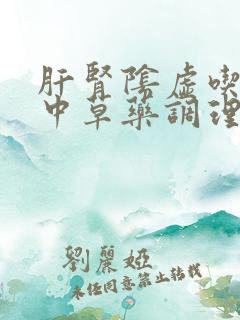 肝腎陰虛喫
中草藥調理
劉麗婭
未經同意禁止轉載